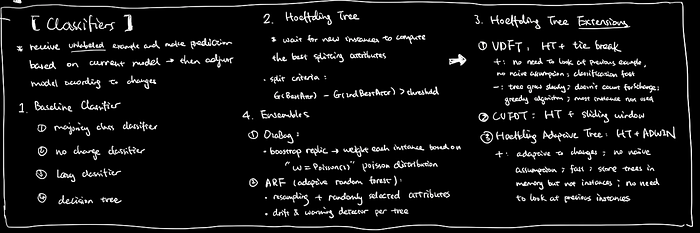 [Classifiers]
* receive unlabeled example and make prediction
based on current model → then adjust
model according to changes
1. Baseline Classifier
① majority class classifier
② no change classifier
③ lazy classifier
④ decision tree
2. Hoeffding Tree
* wait for new instances to compute
the best splitting attributes
• split criteria:
G(BestAttr) - G(2ndBestAttr) > threshold
4. Ensembles
① OzaBag:
• bootstrap replic → weight each instance based on
"w = Poisson(1)" poisson distribution
② ARF (adaptive random forest):
• resampling + randomly selected attributes
• drift & warning detector per tree
3. Hoeffding Tree Extensions
① VDFT: HT + tie break
+: no need to look at previous example,
no naive assumption; classification fast
-: tree grow steady; doesn't count for change;
greedy algorithm; most instance not used
② CVFDT: HT + sliding window
③ Hoeffding Adaptive Tree: HT + ADWIN
+: adaptive to changes; no naive
assumption; fast; store trees in
memory but not instances; no need
to look at previous instances